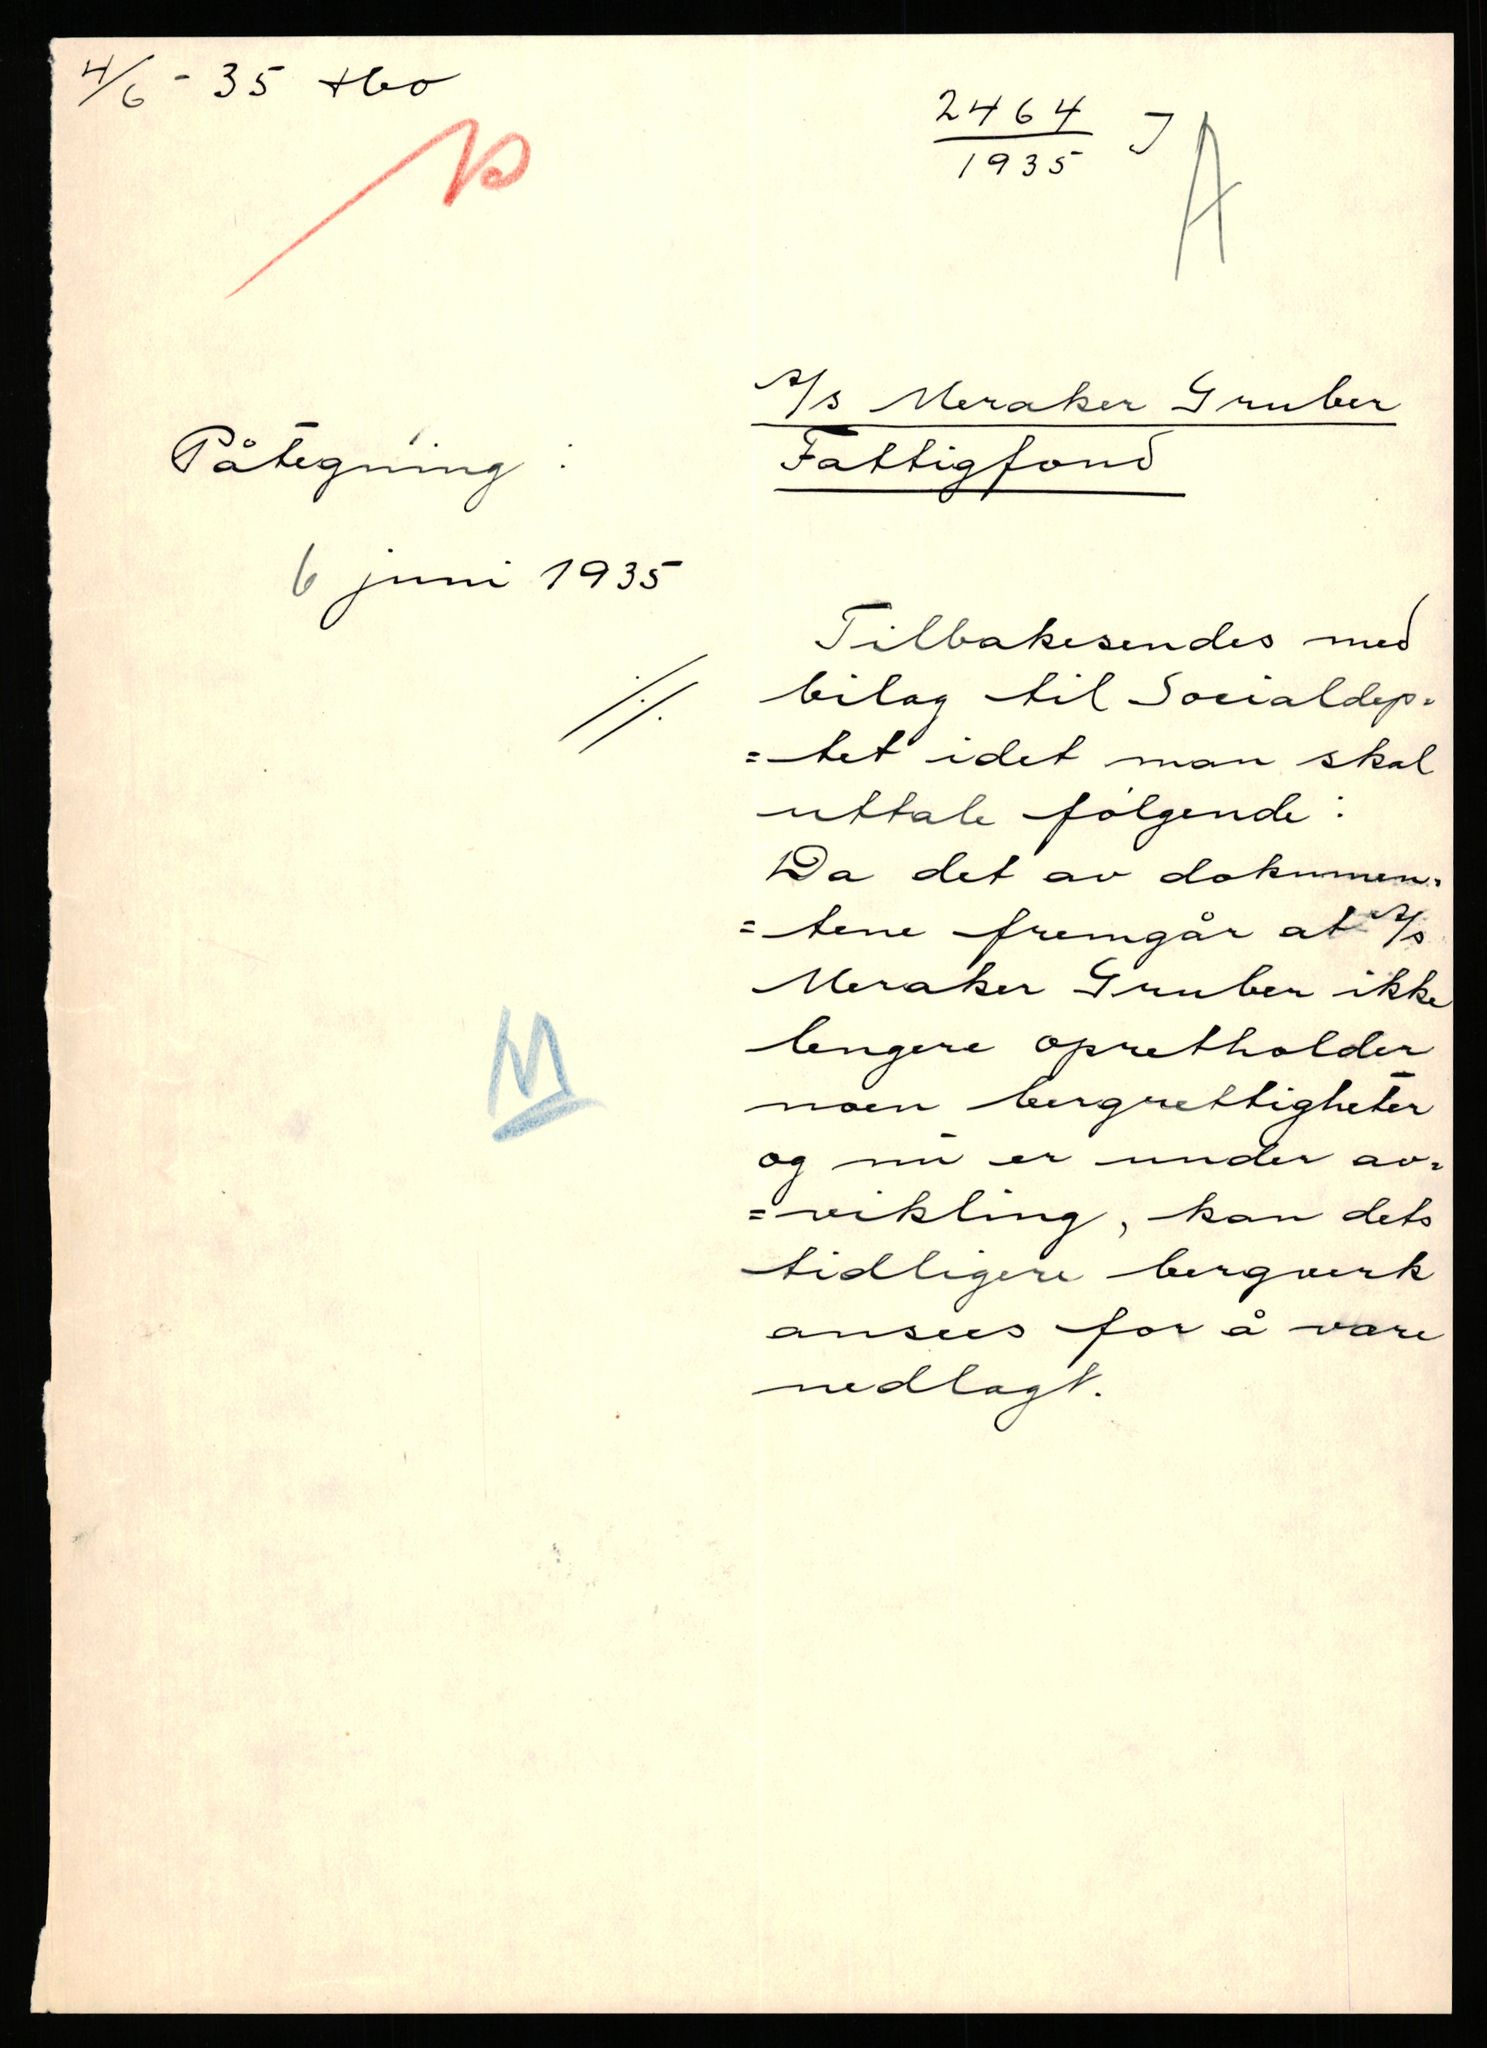 4/6 - 35 Hbo
2464 J
1935
A
A/s Meraker Gruber
Fattigfond
Påtegning :
6 juni 1935
Tilbakesendes med
bilag til Socialdep-
=tet idet man skal
uttale følgende :
Da det av dokumen-
=tene fremgår at A/s
Meraker Gruber ikke
lengere opretholder
noen bergrettigheter
og nu er under av-
=vikling, kan dets
tidligere bergverk
ansees for å være
nedlagt.
M